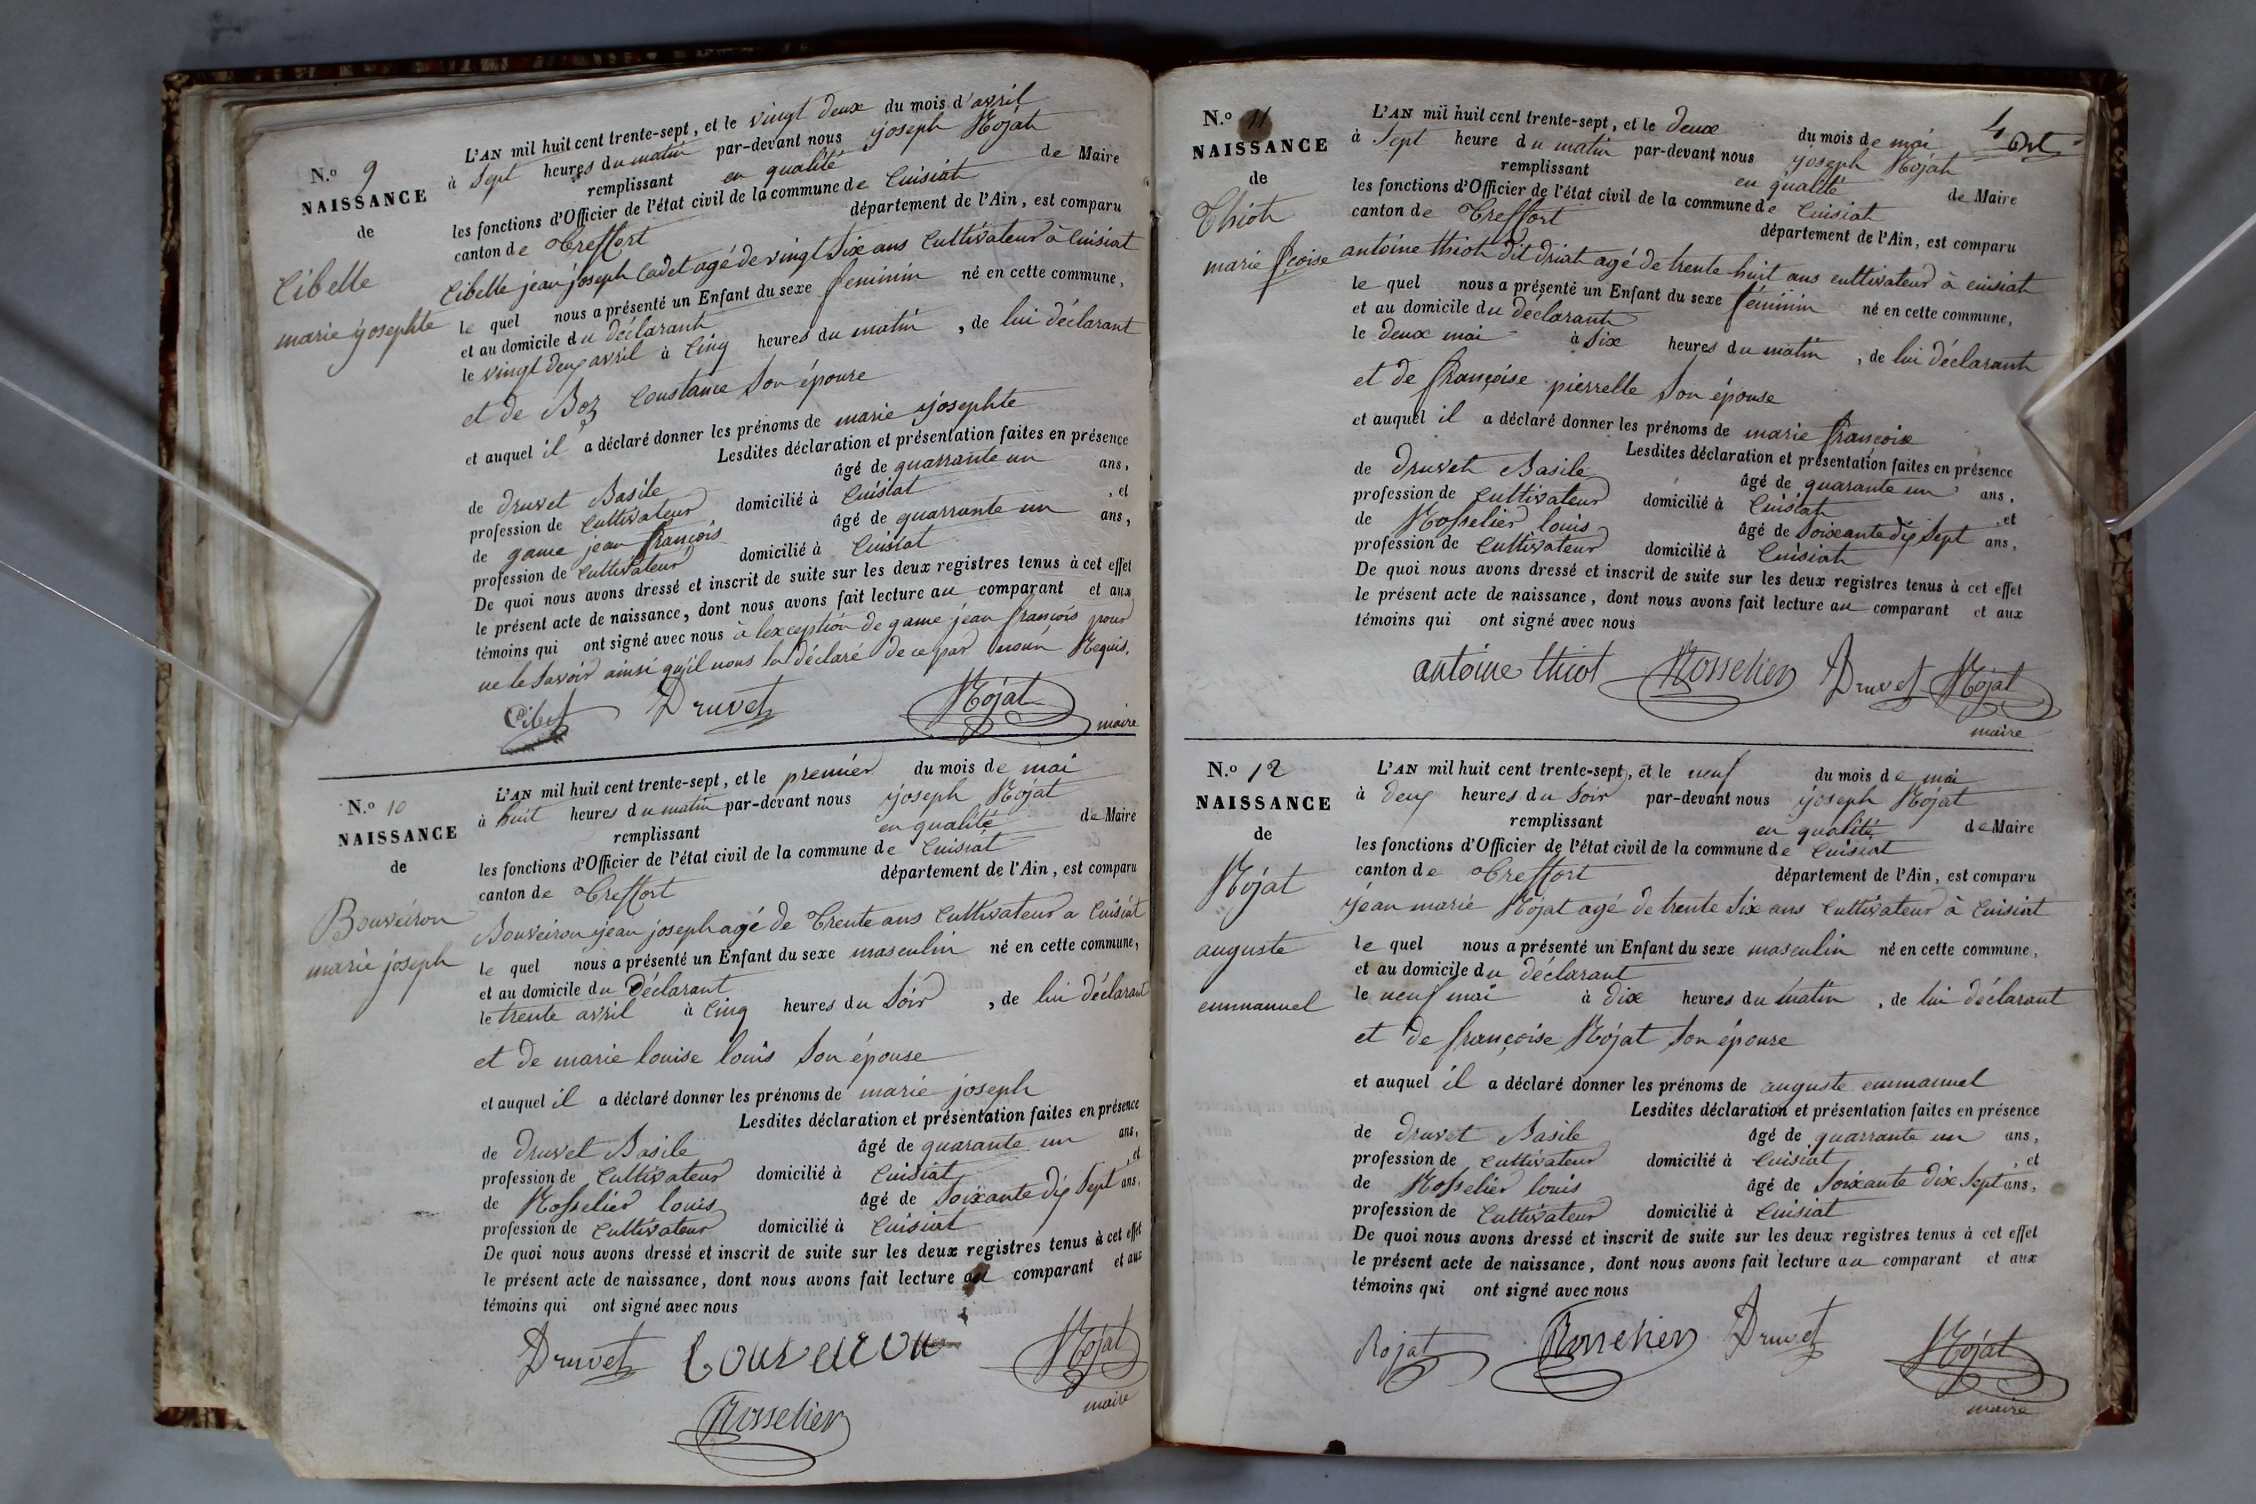 N.° 9
NAISSANCE
de
Cibelle
marie josephte
L'AN mil huit cent trente-sept, et le vingt deux du mois d'avril
à Sept heures du matin par-devant nous joseph Rojat
remplissant en qualité de Maire
les fonctions d'Officier de l'état civil de la commune de Cuisiat
canton de Treffort département de l'Ain, est comparu
Cibelle jean joseph Cadet agé de vingt Six ans Cultivateur à Cuisiat
le quel nous a présenté un Enfant du sexe feminin né en cette commune,
et au domicile du déclarant
le vingt deux avril à Cinq heures du matin, de lui déclarant
et de Boz Constance Son épouse
et auquel il a déclaré donner les prénoms de marie josephte
Lesdites déclaration et présentation faites en présence
de druvet Basile âgé de quarrante un ans,
profession de Cultivateur domicilié à Cuisiat, et
de game jean françois âgé de quarrante un ans,
profession de Cultivateur domicilié à Cuisiat
De quoi nous avons dressé et inscrit de suite sur les deux registres tenus à cet effet
le présent acte de naissance, dont nous avons fait lecture au comparant et aux
témoins qui ont signé avec nous à l'exception de game jean françois pour
ne le Savoir ainsi qu'il nous la déclaré de ce par nous Requis.
Cibel Druvet Rojat
maire
N.° 10
NAISSANCE
de
Bouveiron
marie joseph
L'AN mil huit cent trente-sept, et le premier du mois de mai
à huit heures du matin par-devant nous joseph Rojat
remplissant en qualité de Maire
les fonctions d'Officier de l'état civil de la commune de Cuisiat
canton de Treffort département de l'Ain, est comparu
Bouveiron jean joseph agé de Trente ans Cultivateur a Cuisiat
le quel nous a présenté un Enfant du sexe masculin né en cette commune,
et au domicile du Déclarant
le trente avril à Cinq heures du Soir, de lui déclarant
et de marie louise louis Son épouse
et auquel il a déclaré donner les prénoms de marie joseph
Lesdites déclaration et présentation faites en présence
de druvet Basile âgé de quarante un ans,
profession de Cultivateur domicilié à Cuisiat, et
de Rosselier louis âgé de Soixante dix Sept ans,
profession de Cultivateur domicilié à Cuisiat
De quoi nous avons dressé et inscrit de suite sur les deux registres tenus à cet effet
le présent acte de naissance, dont nous avons fait lecture au comparant et aux
témoins qui ont signé avec nous
Druvet bouveiron Rojat
maire
Rosselier
4
N.° 11
NAISSANCE
de
Thiot
marie fçoise
L'AN mil huit cent trente-sept, et le deux du mois de mai
à Sept heure du matin par-devant nous joseph Rojat
remplissant en qualité de Maire
les fonctions d'Officier de l'état civil de la commune de Cuisiat
canton de Treffort département de l'Ain, est comparu
antoine thiot dit driat agé de trente huit ans cultivateur à cuisiat
le quel nous a présenté un Enfant du sexe féminin né en cette commune,
et au domicile du déclarant
le deux mai à Six heures du matin, de lui déclarant
et de françoise pierrelle Son épouse
et auquel il a déclaré donner les prénoms de marie françoise
Lesdites déclaration et présentation faites en présence
de druvet Basile âgé de quarante un ans,
profession de Cultivateur domicilié à Cuisiat, et
de Rosselier louis âgé de Soixante dix Sept ans,
profession de Cultivateur domicilié à Cuisiat
De quoi nous avons dressé et inscrit de suite sur les deux registres tenus à cet effet
le présent acte de naissance, dont nous avons fait lecture au comparant et aux
témoins qui ont signé avec nous
antoine thiot Rosselier Druvet Rojat
maire
N.° 12
NAISSANCE
de
Rojat
auguste
emmanuel
L'AN mil huit cent trente-sept, et le neuf du mois de mai
à deux heures du Soir par-devant nous joseph Rojat
remplissant en qualité de Maire
les fonctions d'Officier de l'état civil de la commune de Cuisiat
canton de Treffort département de l'Ain, est comparu
jean marie Rojat agé de trente Six ans Cultivateur à Cuisiat
le quel nous a présenté un Enfant du sexe masculin né en cette commune,
et au domicile du déclarant
le neuf mai à dix heures du matin, de lui déclarant
et de françoise Rojat Son épouse
et auquel il a déclaré donner les prénoms de auguste emmanuel
Lesdites déclaration et présentation faites en présence
de druvet Basile âgé de quarrante un ans,
profession de Cultivateur domicilié à Cuisiat, et
de Rosselier louis âgé de Soixante dix Sept ans,
profession de Cultivateur domicilié à Cuisiat
De quoi nous avons dressé et inscrit de suite sur les deux registres tenus à cet effet
le présent acte de naissance, dont nous avons fait lecture au comparant et aux
témoins qui ont signé avec nous
Rojat Rosselier Druvet Rojat
maire